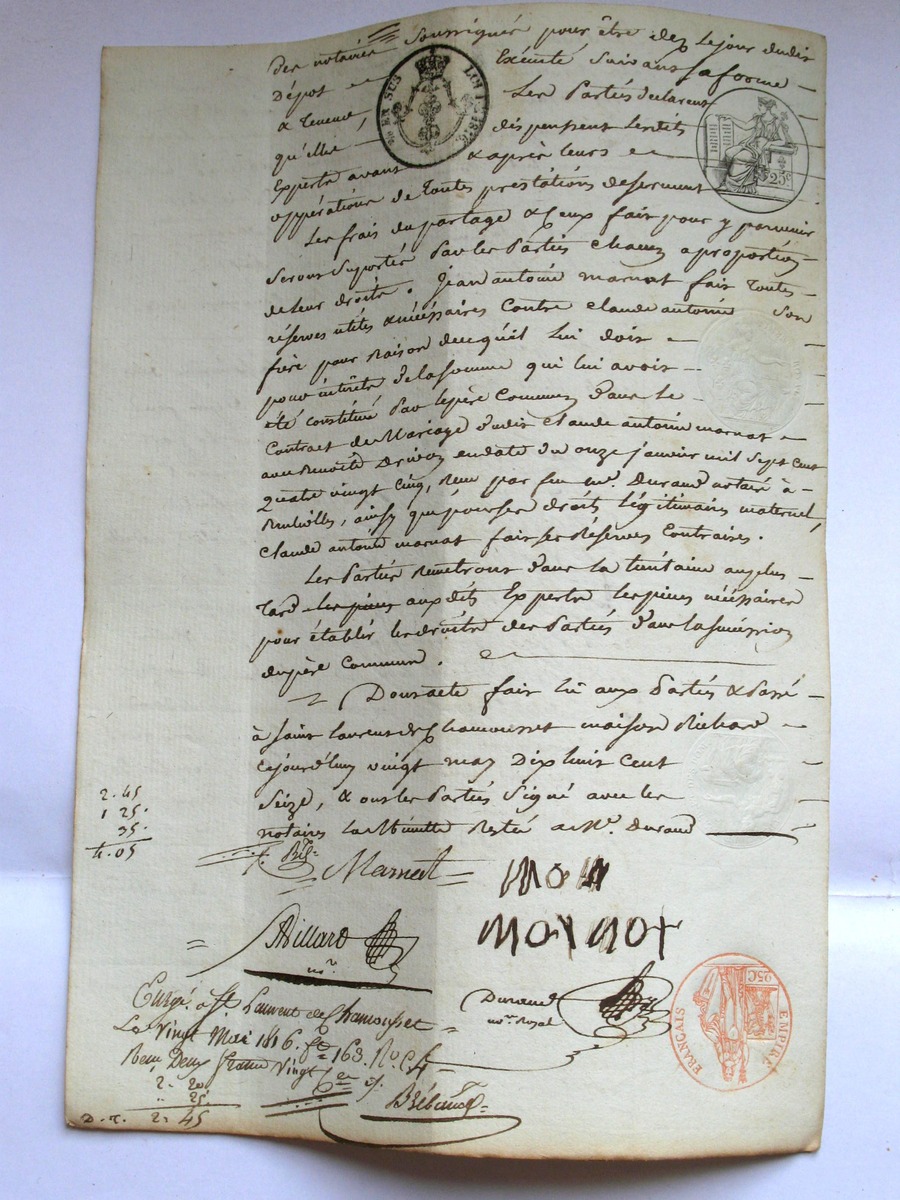 des notaires soussignés pour être dès lejour dudit
Dépot - Exécuté Suivant Saforme -
& teneur, Les Parties declarent
qu'elles dispensent Lesdits
Experts avant & après leurs -
oppérations de Toutes prestations deserment
Les frais du partage & Ceux fait pour y parvenir
Seront Suportés Par les Parties Chacun a proportion
de leur droits. Jean antoine marnat fait Toutes -
réserves utiles & nécéssaires Contre claude antoine son
frère pour Raison de ce qu'il Lui doit -
pour intérêts de la somme qui lui avoit -
été constitué Par le père Commun Dans Le
Contract de Mariage dudit Claude antoine marnat -
avec Benoite en date du onze janvier mil Sept Cent
Quatre vingt Cinq, Reçu par feu me. Durand notaire à -
, ainsy que pour ses droits légitimaires maternel,
Claude antoine marnat fait ses Réserves Contraires.
Les Parties Remetront Dans la huitaine auplus -
Tard les pièces aux dits Experts les pièces nécéssaires
pour établir les droits des Parties Dans la Succéssion
du père Commun.
Dont acte fait Lu aux Parties & Passé -
à Saint Laurent de Chamousset maison Richard -
Cejourd'huy vingt may Dix huit Cent
Seize, & ont les Parties Signé avec les
notaires La Minutte Restée a Me. Durand
2. 45
1 25.
35.
4. 05
Marnat
Billard
nre.
Durand
nore Royal
Enrgé. à St. Laurent de Chamousset
Le Vingt Mai 1816. fo 163. Ro C 4
Reçu Deux francs Vingt Cen
2. 20
" 25.
D. r. 2. 45
EN SUS
LOI 1816
25c
EMPIRE FRANCAIS
25C